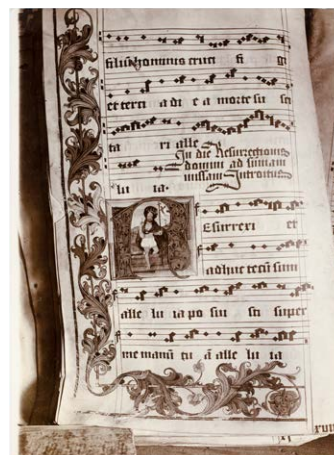 filiu hominis cruci fi gi
et terci a di e a morte su sci
ta ri alle
In die Resurrectionis
domini ad sumam
missam Introitus
lu ia
Esurrexi et
adhuc tecū sum
alle lu ia po sui sti super
me manū tu ā alle lu ia